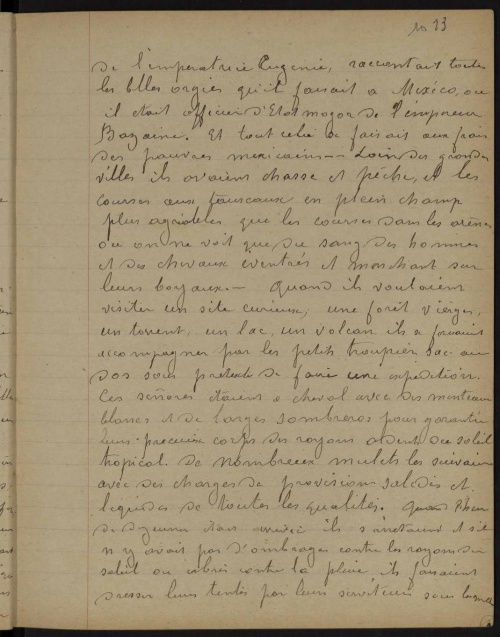 23
de l'imperatrice Eugenie, racontait toutes
les belles orgies qu'il faisait a Mexico, ou
il etait officier d'Etat mogor de l'empereur
Bazaine. Et tout cela se faisais aux frais
des pauvres mexicains — Loin des grandes
villes ils avaient chasse et pêche, et les
courses aux taureaux en plein champ
plus agréables que les courses dans les arenes
ou on ne voit que du sang des hommes
et des chevaux éventrés et marchant sur
leurs boyaux. — Quand ils voulaient
visiter un site curieux, une forêt vierge,
un torrent, un lac, un volcan ils se faisaient
accompagner par les petits troupier sac au
dos sous pretexte de faire une expedition.
Ces señores étaient a cheval avec des manteaux
blancs et de larges sombreros pour garantir
leurs precieux corps des rayons ardent du soleil
tropical. De nombreux mulets les suivaient
avec des charges de provisions solides et
liquides de toutes les qualités. Quand l'heure
de dejeuner était arrivée ils s'arretaient et s'il
n'y avait pas d'ombrages contre les rayons du
soleil ou abris contre la pluie ils faisaient
dresser leurs tentes par leurs serviteurs sous